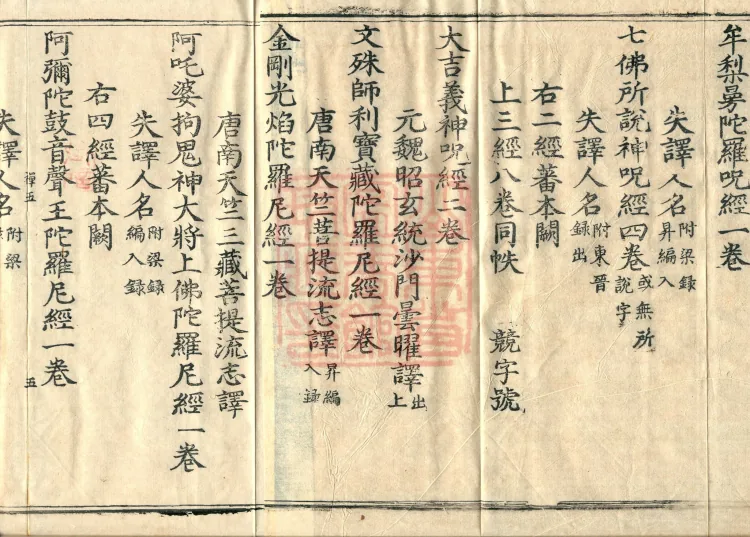 牟梨曼陀羅呪經一卷
失譯人名附梁錄昇編入
七佛所說神呪經四卷或無所說字
失譯人名附東晉錄出
右二經蕃本闕
上三經八卷同帙 競字號
大吉義神呪經二卷
元魏昭玄統沙門曇曜譯出上
文殊師利寶藏陀羅尼經一卷
唐南天竺菩提流志譯昇編入錄
金剛光焰陀羅尼經一卷
唐南天竺三藏菩提流志譯
阿吒婆拘鬼神大將上佛陀羅尼經一卷
失譯人名附梁錄編入錄
右四經蕃本闕
阿彌陀鼓音聲王陀羅尼經一卷 五
失譯人名附梁